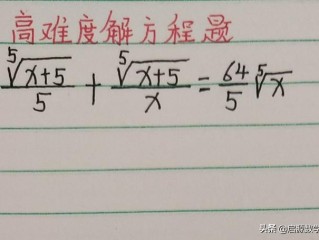 高难度解方程题
⁵√(x+5)/5 + ⁵√(x+5)/x = 64/5 ⁵√x
头条 @启源数学